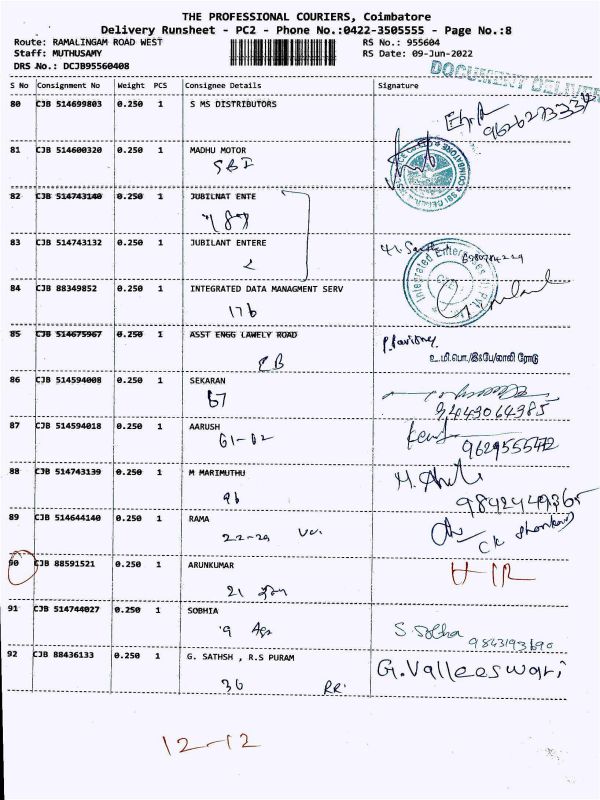 THE PROFESSIONAL COURIERS, Coimbatore
Delivery Runsheet - PC2 - Phone No.:0422-3505555 - Page No.:8
Route: RAMALINGAM ROAD WEST RS No.: 955604
Staff: MUTHUSAMY RS Date: 09-Jun-2022
DRS No.: DCJB95560408
DOCUMENT DELIVER
S No Consignment No Weight PCS Consignee Details Signature
80 CJB 514699803 0.250 1 S MS DISTRIBUTORS
9626273334
81 CJB 514600320 0.250 1 MADHU MOTOR
SBI
82 CJB 514743140 0.250 1 JUBILNAT ENTE
83 CJB 514743132 0.250 1 JUBILANT ENTERE
Integrated Enterprises
84 CJB 88349852 0.250 1 INTEGRATED DATA MANAGMENT SERV
176
85 CJB 514675967 0.250 1 ASST ENGG LAWELY ROAD
EB
உ.மி.பொ./இ&பே/லாலி ரோடு
86 CJB 514594008 0.250 1 SEKARAN
67
9443064985
87 CJB 514594018 0.250 1 AARUSH
61-02
9629555472
88 CJB 514743139 0.250 1 M MARIMUTHU
96
9842449365
89 CJB 514644140 0.250 1 RAMA
22-29
CK Shankar
90 CJB 88591521 0.250 1 ARUNKUMAR
21
91 CJB 514744027 0.250 1 SOBHIA
S. Sobha
9 Ags 9843193690
92 CJB 88436133 0.250 1 G. SATHSH , R.S PURAM
G. Valleeswari
36 RR.
12-12